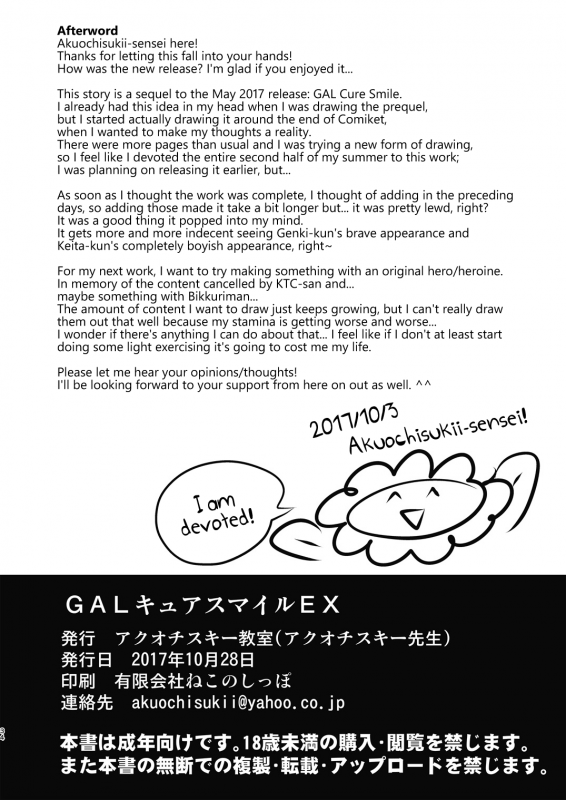 Afterword
Akuochisukii-sensei here!
Thanks for letting this fall into your hands!
How was the new release? I'm glad if you enjoyed it...
This story is a sequel to the May 2017 release: GAL Cure Smile.
I already had this idea in my head when I was drawing the prequel,
but I started actually drawing it around the end of Comiket,
when I wanted to make my thoughts a reality.
There were more pages than usual and I was trying a new form of drawing,
so I feel like I devoted the entire second half of my summer to this work;
I was planning on releasing it earlier, but...
As soon as I thought the work was complete, I thought of adding in the preceding
days, so adding those made it take a bit longer but... it was pretty lewd, right?
It was a good thing it popped into my mind.
It gets more and more indecent seeing Genki-kun's brave appearance and
Keita-kun's completely boyish appearance, right~
For my next work, I want to try making something with an original hero/heroine.
In memory of the content cancelled by KTC-san and...
maybe something with Bikkuriman...
The amount of content I want to draw just keeps growing, but I can't really draw
them out that well because my stamina is getting worse and worse...
I wonder if there's anything I can do about that... I feel like if I don't at least start
doing some light exercising it's going to cost me my life.
Please let me hear your opinions/thoughts!
I'll be looking forward to your support from here on out as well. ^^
2017/10/3
Akuochisukii-sensei!
I am
devoted!
ＧＡＬキュアスマイルＥＸ
発行　アクオチスキー教室(アクオチスキー先生)
発行日　2017年10月28日
印刷　有限会社ねこのしっぽ
連絡先　akuochisukii@yahoo.co.jp
本書は成年向けです。18歳未満の購入・閲覧を禁じます。
また本書の無断での複製・転載・アップロードを禁じます。